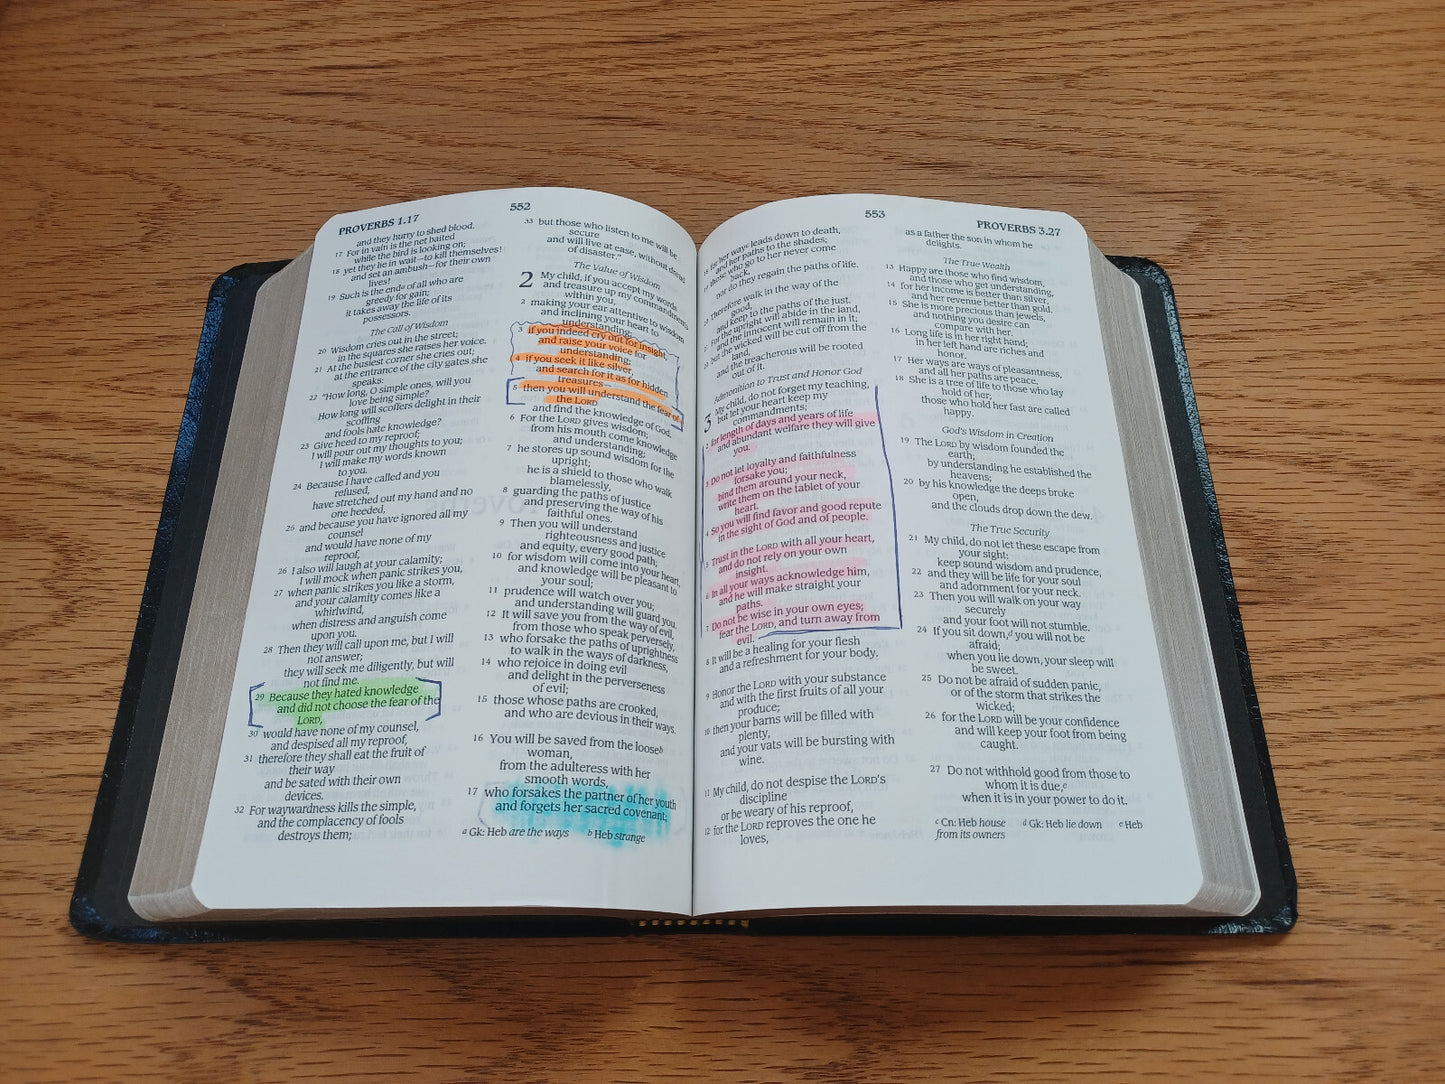 PROVERBS 1.17
552
and they hurry to shed blood.
17 For in vain is the net baited
while the bird is looking on;
18 yet they lie in wait—to kill themselves!
and set an ambush—for their own
lives!
19 Such is the endᵃ of all who are
greedy for gain;
it takes away the life of its
possessors.
The Call of Wisdom
20 Wisdom cries out in the street;
in the squares she raises her voice.
21 At the busiest corner she cries out;
at the entrance of the city gates she
speaks:
22 "How long, O simple ones, will you
love being simple?
How long will scoffers delight in their
scoffing
and fools hate knowledge?
23 Give heed to my reproof;
I will pour out my thoughts to you;
I will make my words known
to you.
24 Because I have called and you
refused,
have stretched out my hand and no
one heeded,
25 and because you have ignored all my
counsel
and would have none of my
reproof,
26 I also will laugh at your calamity;
I will mock when panic strikes you,
27 when panic strikes you like a storm,
and your calamity comes like a
whirlwind,
when distress and anguish come
upon you.
28 Then they will call upon me, but I will
not answer;
they will seek me diligently, but will
not find me.
29 Because they hated knowledge
and did not choose the fear of the
LORD,
30 would have none of my counsel,
and despised all my reproof,
31 therefore they shall eat the fruit of
their way
and be sated with their own
devices.
32 For waywardness kills the simple,
and the complacency of fools
destroys them;
33 but those who listen to me will be
secure
and will live at ease, without dread
of disaster."
The Value of Wisdom
2 My child, if you accept my words
and treasure up my commandments
within you,
2 making your ear attentive to wisdom
and inclining your heart to
understanding;
3 if you indeed cry out for insight,
and raise your voice for
understanding;
4 if you seek it like silver,
and search for it as for hidden
treasures—
5 then you will understand the fear of
the LORD
and find the knowledge of God.
6 For the LORD gives wisdom;
from his mouth come knowledge
and understanding;
7 he stores up sound wisdom for the
upright;
he is a shield to those who walk
blamelessly,
8 guarding the paths of justice
and preserving the way of his
faithful ones.
9 Then you will understand
righteousness and justice
and equity, every good path;
10 for wisdom will come into your heart,
and knowledge will be pleasant to
your soul;
11 prudence will watch over you;
and understanding will guard you.
12 It will save you from the way of evil,
from those who speak perversely,
13 who forsake the paths of uprightness
to walk in the ways of darkness,
14 who rejoice in doing evil
and delight in the perverseness
of evil;
15 those whose paths are crooked,
and who are devious in their ways.
16 You will be saved from the looseᵇ
woman,
from the adulteress with her
smooth words,
17 who forsakes the partner of her youth
and forgets her sacred covenant;
a Gk: Heb are the ways b Heb strange
553
PROVERBS 3.27
18 for her wayᶜ leads down to death,
and her paths to the shades;
19 those who go to her never come
back,
nor do they regain the paths of life.
20 Therefore walk in the way of the
good,
and keep to the paths of the just.
For the upright will abide in the land,
and the innocent will remain in it;
but the wicked will be cut off from the
land,
and the treacherous will be rooted
out of it.
Admonition to Trust and Honor God
3 My child, do not forget my teaching,
but let your heart keep my
commandments;
2 for length of days and years of life
and abundant welfare they will give
you.
3 Do not let loyalty and faithfulness
forsake you;
bind them around your neck,
write them on the tablet of your
heart.
4 So you will find favor and good repute
in the sight of God and of people.
5 Trust in the LORD with all your heart,
and do not rely on your own
insight.
6 In all your ways acknowledge him,
and he will make straight your
paths.
7 Do not be wise in your own eyes;
fear the LORD, and turn away from
evil.
8 It will be a healing for your flesh
and a refreshment for your body.
9 Honor the LORD with your substance
and with the first fruits of all your
produce;
10 then your barns will be filled with
plenty,
and your vats will be bursting with
wine.
11 My child, do not despise the LORD's
discipline
or be weary of his reproof,
12 for the LORD reproves the one he
loves,
as a father the son in whom he
delights.
The True Wealth
13 Happy are those who find wisdom,
and those who get understanding,
14 for her income is better than silver,
and her revenue better than gold.
15 She is more precious than jewels,
and nothing you desire can
compare with her.
16 Long life is in her right hand;
in her left hand are riches and
honor.
17 Her ways are ways of pleasantness,
and all her paths are peace.
18 She is a tree of life to those who lay
hold of her;
those who hold her fast are called
happy.
God's Wisdom in Creation
19 The LORD by wisdom founded the
earth;
by understanding he established the
heavens;
20 by his knowledge the deeps broke
open,
and the clouds drop down the dew.
The True Security
21 My child, do not let these escape from
your sight:
keep sound wisdom and prudence,
22 and they will be life for your soul
and adornment for your neck.
23 Then you will walk on your way
securely
and your foot will not stumble.
24 If you sit down,ᵈ you will not be
afraid;
when you lie down, your sleep will
be sweet.
25 Do not be afraid of sudden panic,
or of the storm that strikes the
wicked;
26 for the LORD will be your confidence
and will keep your foot from being
caught.
27 Do not withhold good from those to
whom it is due,ᵉ
when it is in your power to do it.
c Cn: Heb house d Gk: Heb lie down e Heb
from its owners